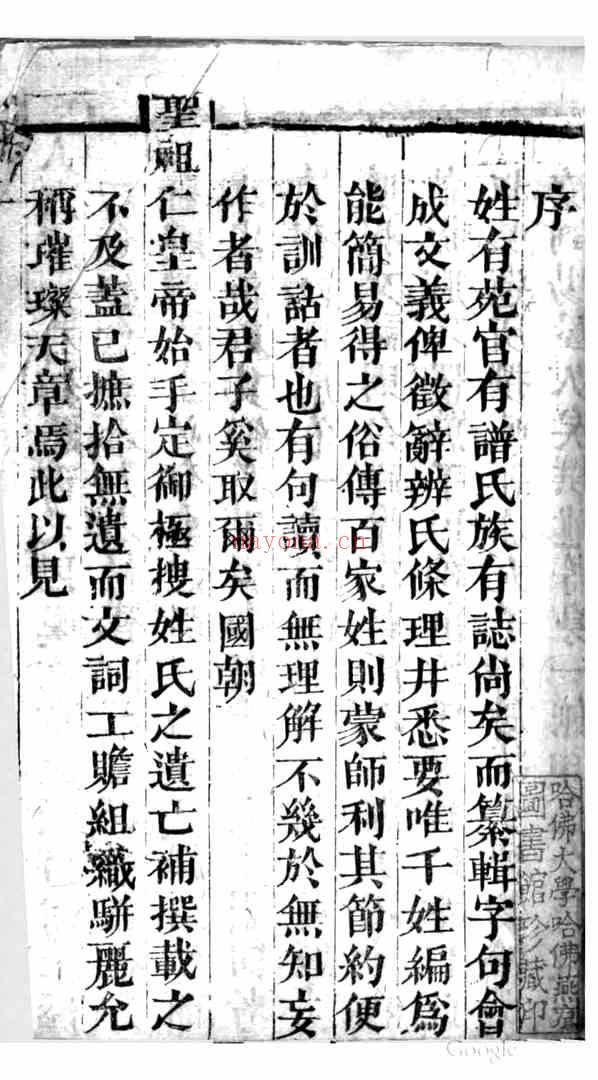 序
姓有苑官有譜氏族有誌尙矣而纂輯字句會
成文義俾徵辭辨氏條理井悉要唯千姓編爲
能簡易得之俗傳百家姓則蒙師利其節約便
於訓詁者也有句讀而無理解不幾於無知妄
作者哉君子奚取爾矣國朝
聖祖仁皇帝始手定御極搜姓氏之遺亡補撰載之
不及蓋已摭拾無遺而文詞工贍組織駢麗允
稱璀璨天章焉此以見
哈佛大學哈佛燕京
圖書館珍藏印
nayona.cn
Google